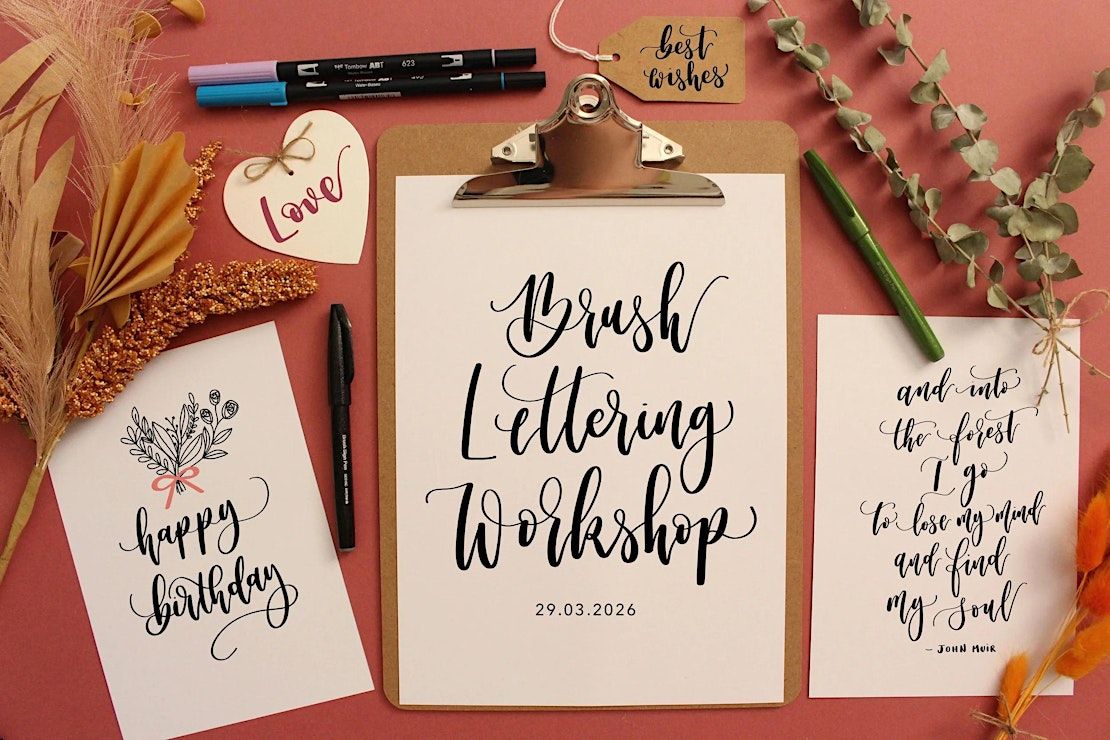 Tombow ABT
623
best
wishes
Love
Brush
Lettering
Workshop
29.03.2026
happy
birthday
and into
the forest
I go
to lose my mind
and find
my soul
- JOHN MUIR